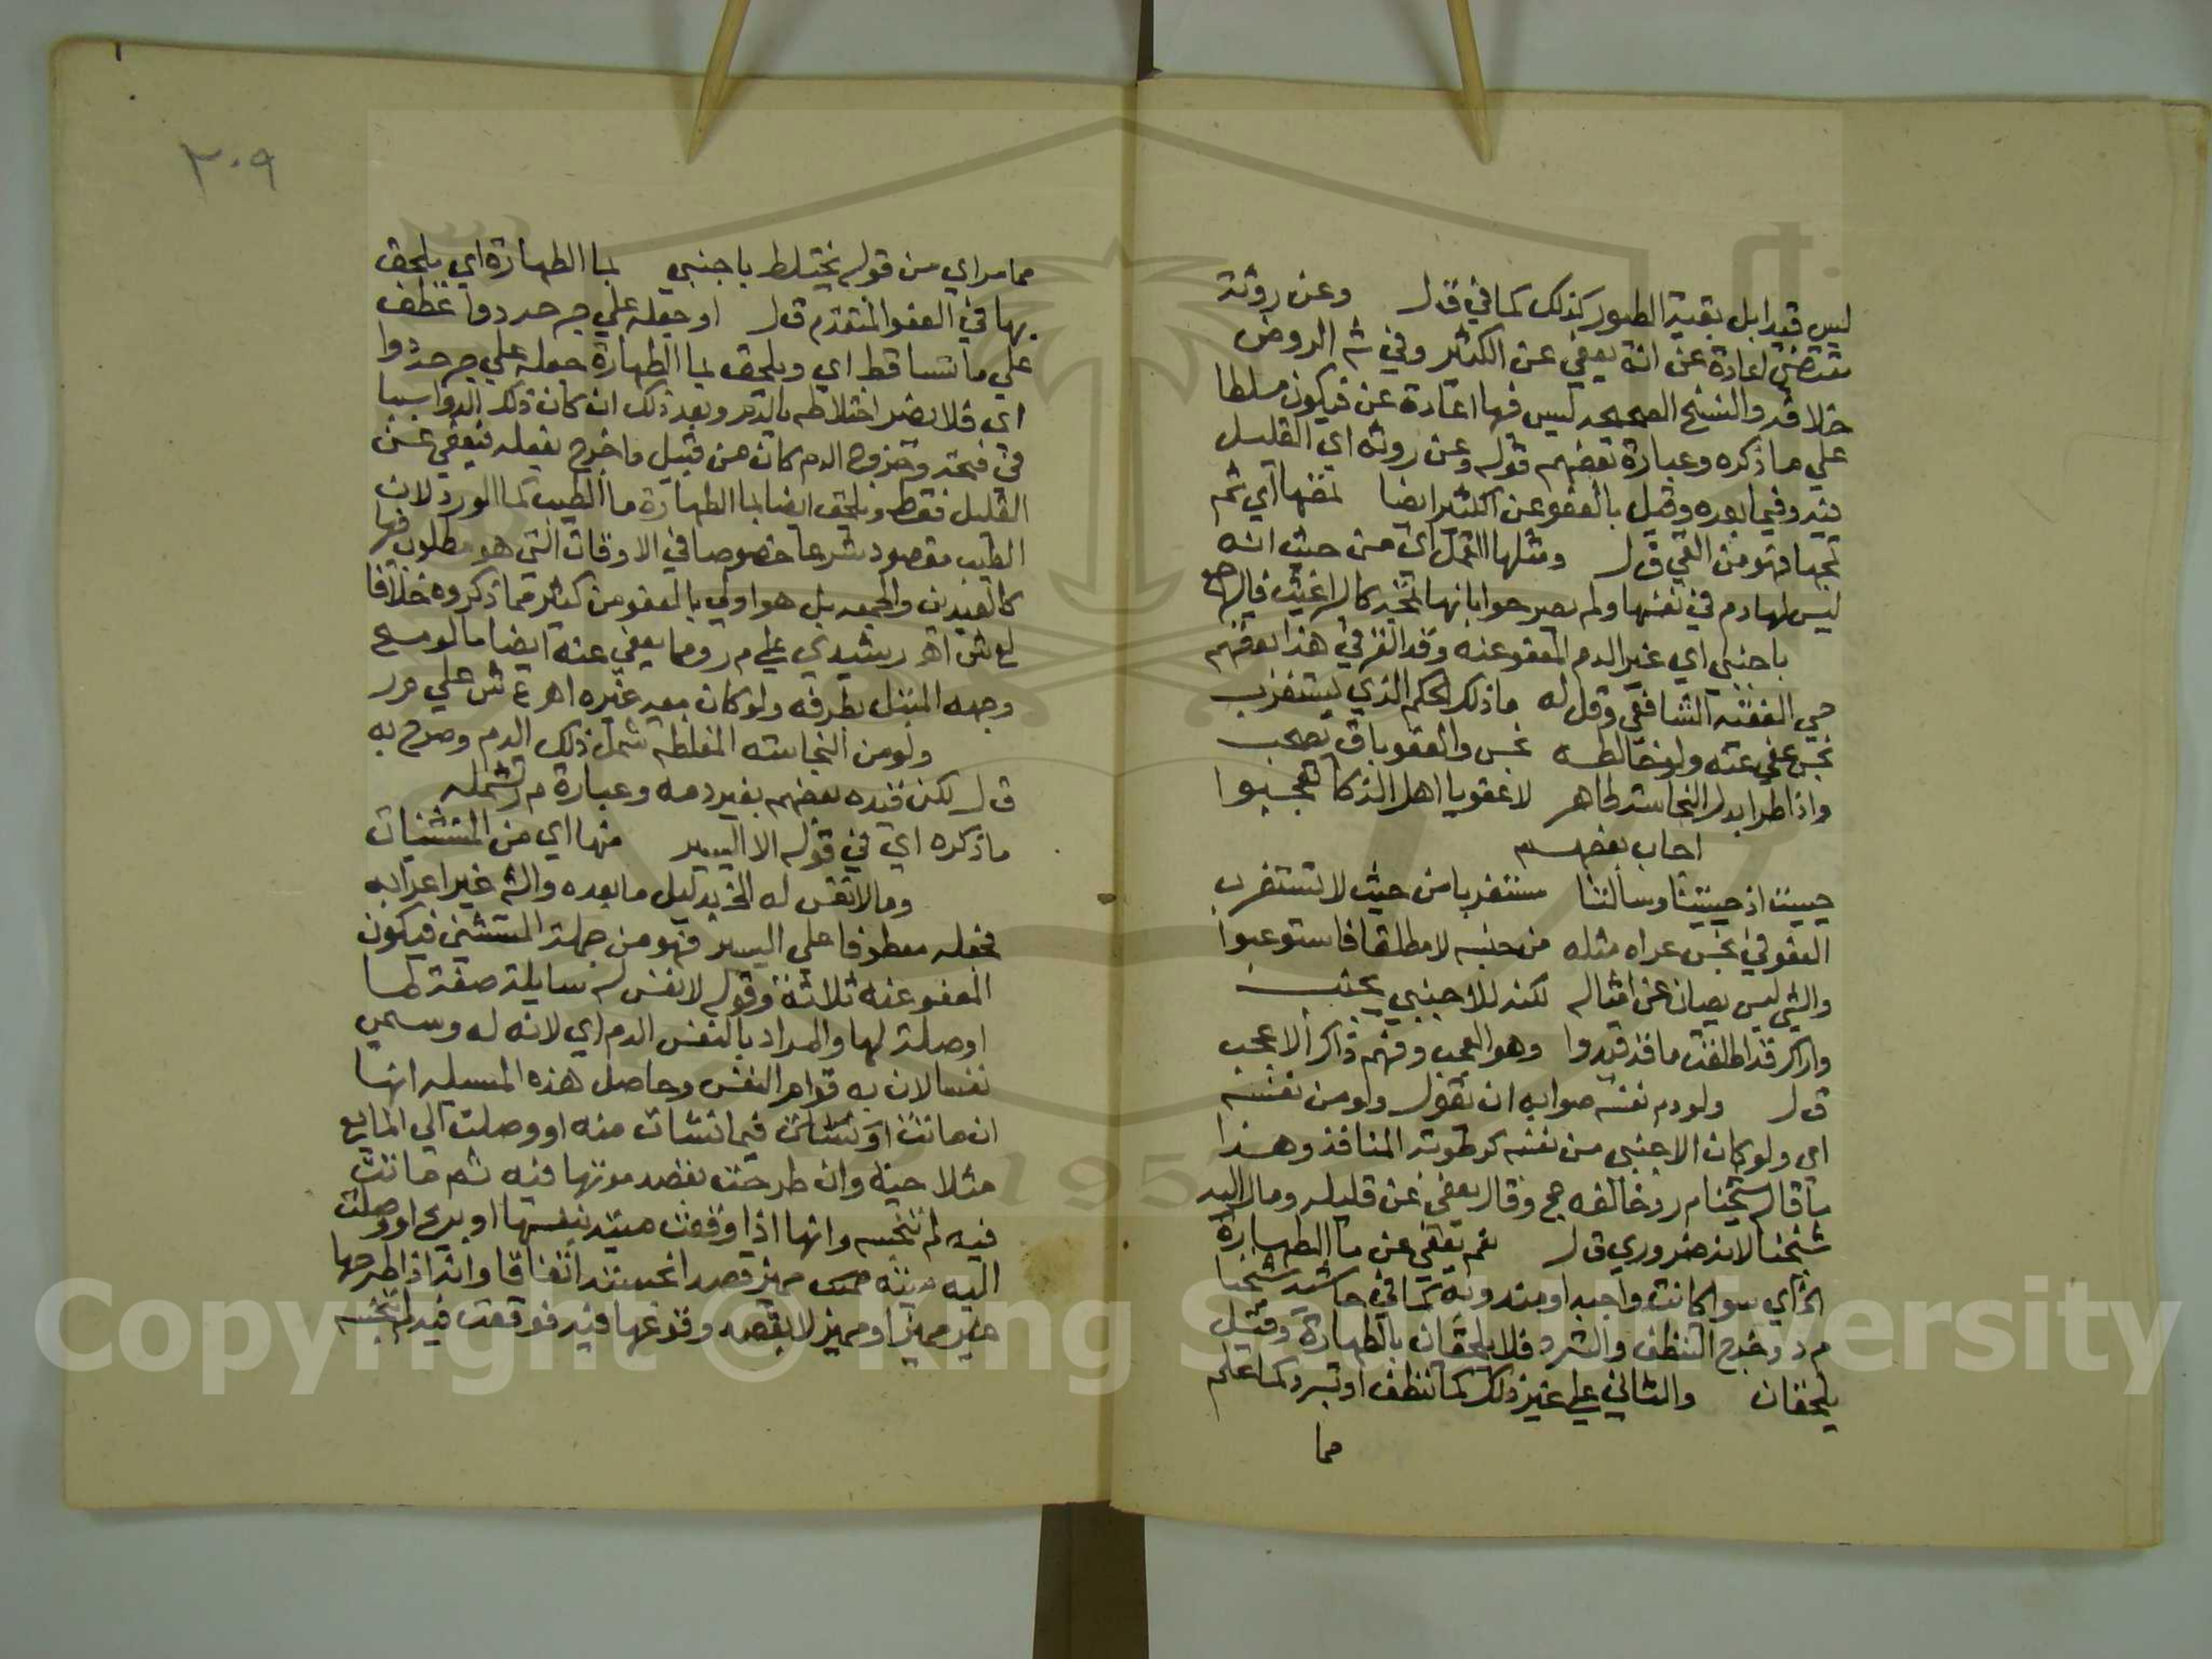 ليس قيدا بل بقية الطيور كذلك كما في ق ل وعن روثة
مقتضى اعادة عن انه يعفي عن الكثير وفي ش الروض
خلافه والنسخ الصحيحه ليس فيها اعادة عن فيكون مسلطا
علي ما ذكره وعبارة بعضهم قوله وعن روثه اي القليل
فيه وفيما بعده وقيل بالعفو عن الكثير ايضا تمضها اي ثم
تمجها فهو من القي ق ل ومثلها القمل اي من حيث انه
ليس لها دم في نفسها ولم يصرحوا بانها
باجنبي اي غير الدم المعفو عنه وقد الغز في هذا بعضهم
حي الفقيه الشافعي وقل له ما ذلك الحكم الذي يستغرب
نجس عفي عنه ولو خالطه نجس والعفو باق يصحب
واذا طرا بدل النجاسة طاهر لا عفو يا اهل الذكا تعجبوا
اجاب بعضهم
حييت اذ حييتنا وسالتنا مستغربا من حيث لا تستغرب
العفو في نجس عراه مثله من جنسه لا مطلقا فاستوعبوا
والشي ليس يصان عن امثاله لكنه للاجنبي يجنب
واراك قد اطلقت ما قد قيدوا وهو العجب وفهم ذاك الاعجب
ق ل ولو دم نفسه صوابه ان يقول ولو من نفسه
اي ولو كان الاجنبي من نفسه كرطوبة المنافذ وهذا
ما قال شيخنا م ر وخالفه حج وقال يعفي عن قليله ومال اليه
شيخنا لانه ضروري ق ل نعم يعفي عن ما الطهارة
الخ اي سوا كانت واجبه او مندوبه كما في حاشية شيخنا
م د وخرج التنظف والتبرد فلا يلحقان بالطهارة وقيل
يلحقان والثاني علي غير ذلك كما تنظف او تبرد كما علم
مما
٢٠٩
مما مر اي من قوله يختلط باجنبي بما الطهارة اي يلحق
بها في العفو المتقدم ق ل او جعله علي جرحه دوا عطف
علي ما تساقط اي ويلحق بما الطهارة جعله علي جرحه دوا
اي فلا يضر اختلاطه بالدم وبعد ذلك ان كان ذلك الدوا سببا
في فتحه وخروج الدم كان من قبيل ما خرج بفعله فيعفي عن
القليل فقط ويلحق ايضا بما الطهارة ما الطيب كما الورد لان
الطيب مقصود شرعا خصوصا في الاوقات التي هو مطلوب فيها
كالعيدين والجمعه بل هو اولي بالعفو من كثير مما ذكروه خلافا
لع ش اهـ رشيدي علي م ر ومما يعفي عنه ايضا ما لو مسح
وجهه المبتل بطرفه ولو كان معه غيره اهـ ع ش علي م ر
ولو من النجاسة المغلظه شمل ذلك الدم وصرح به
ق ل لكن قيده بعضهم بغير دمه وعبارة م ر تشمله
ما ذكره اي في قوله الا اليسير منها اي من المستثنيات
وما لا نفس له الخ بدليل ما بعده والش غير اعرابه
فجعله معطوفا علي اليسير فهو من جملة المستثني فيكون
المعفو عنه ثلاثة وقوله لا نفس له سايلة صفة لما
او صلة لها والمراد بالنفس الدم اي لانه له وسمي
نفسا لان به قوام النفس وحاصل هذه المسيله انها
ان ماتت او نشات فيما نشات منه او وصلت الي المايع
مثلا حية وان طرحت بقصد موتها فيه ثم ماتت
فيه لم تنجسه وانها اذا وقعت ميتة بنفسها او بريح او وصلت
اليه ميتة مميز قصدا نجسته اتفاقا وانه اذا طرحها
غير مميز او مميز لا بقصد وقوعها فيه فوقعت فيه لم تنجسه
Copyright © King Saud University
1957